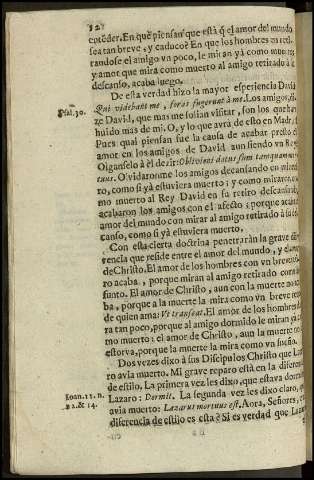 12
entẽder. En què piensan que està q̃ el amor del mundo
sea tan breve, y caduco? En que los hombres en
randose el amigo vn poco, le miran yà como muer
y amor que mira como muerto al amigo retirado à
descanso, acaba luego.
De esta verdad hizo la mayor esperiencia David
Psal. 30.
Qui videbant me, foras fugerunt à me. Los amigos, di-
ze David, que mas me solian visitar, son los que han
huido mas de mi. O, y lo que avrà de esto en
Pues qual piensan fue la causa de acabar presto el
amor en los amigos de David aun siendo vn Rey
Oiganselo à èl dezir: Oblivioni datus sum tanquam mor
tuus. Olvidaronme los amigos decansando en mi
ro, como si yà estuviera muerto; y como miraron
mo muerto al Rey David en su retiro descansando
acabaron los amigos con el afecto; porque acaba
amor del mundo con mirar al amigo retirado à su
canso, como si yà estuviera muerto.
Con esta cierta doctrina penetraràn la grave
rencia que reside entre el amor del mundo, y el amor
de Christo. El amor de los hombres con vn breve
ro acaba, porque miran al amigo retirado como
funto. El amor de Christo, aun con la muerte no
ba, porque a la muerte la mira como vn breve
de quien ama: Vt transeat. El amor de los hombres
ra tan poco, porque al amigo dormido le miran yà
mo muerto: el amor de Christo, aun la muerte no
estorva, porque la muerte la mira como vn sueño.
Dos vezes dixo à sus Discipulos Christo que Laza
ro avia muerto. Mi grave reparo està en la diferencia
de estilo. La primera vez les dixo, que estava dormido
Ioan. 11. n.
11. & 14.
Lazaro: Dormit. La segunda vez les dixo claro, que
avia muerto: Lazarus mortuus est. Aora, Señores,
diferencia de estilo es esta? Si es verdad que Laza